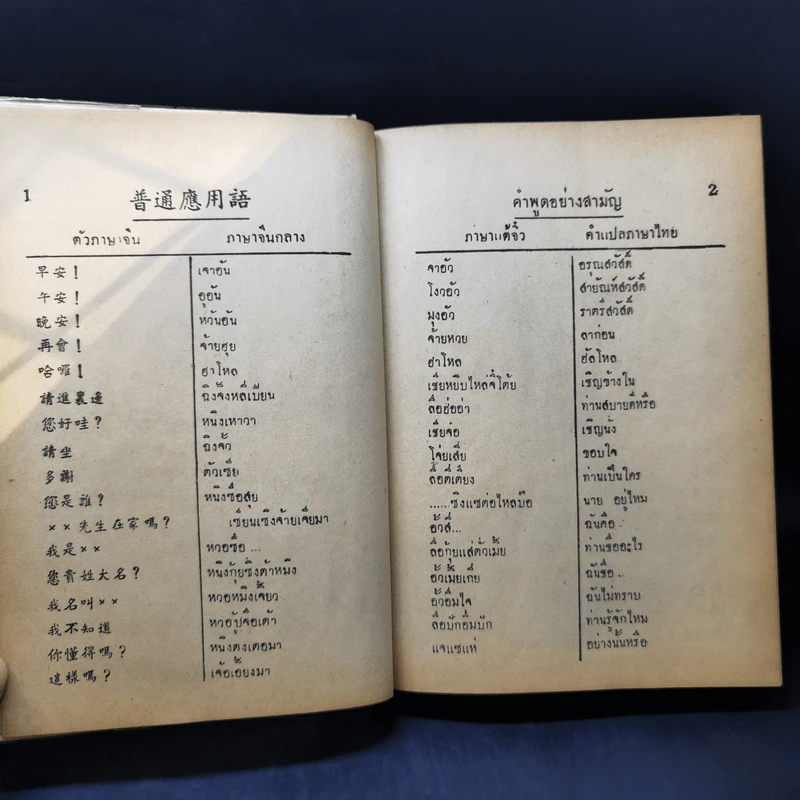 1
普通應用語
ตัวภาษาจีน ภาษาจีนกลาง
早安！ เจาอัน
午安！ อูอัน
晚安！ หวันอัน
再會！ จ้ายฮุย
哈囉！ ฮาโหล
請進裏邊 ฉิงจิ้งหลี่เบียน
您好哇？ หนิงเหาวา
請坐 ฉิงจั้ว
多謝 ตัวเซี่ย
您是誰？ หนิงซื่อสุย
××先生在家嗎？ เซี่ยนเซิงจ้ายเจี่ยมา
我是×× หวอซื่อ ...
您貴姓大名？ หนิงกุ้ยซิ่งต้าหมิง
我名叫×× หวอหมิงเจี้ยว
我不知道 หวอปู้จื่อเต้า
你懂得嗎？ หนิงตงเตอมา
這樣嗎？ เจ้อเอี้ยงมา
2
คำพูดอย่างสามัญ
ภาษาแต้จิ๋ว คำแปลภาษาไทย
จาอัว อรุณสวัสดิ์
โงวอัว สายัณห์สวัสดิ์
มุงอัว ราตรีสวัสดิ์
จ้ายหวย ลาก่อน
ฮาโหล ฮัลโหล
เชี่ยหยิบไหล่จี๋โต้ย เชิญข้างใน
ลื่อฮ่อย่า ท่านสบายดีหรือ
เชี่ยจ๋อ เชิญนั่ง
โจ่ยเสี่ย ขอบใจ
ลื้อตี่เตี๋ยง ท่านเป็นใคร
......ซิงแซต่อไหลบ๊อ นาย อยู่ไหม
อั๊วสี่... ฉันคือ
ลื้อกุ้ยแส่ตั๋วเมี้ย ท่านชื่ออะไร
อั๊วเมี้ยเกี่ย ฉันชื่อ
อั๊วอื่มไจ ฉันไม่ทราบ
ลื้อบักอื่มบัก ท่านรู้จักไหม
แจแซแห่ อย่างนั้นหรือ